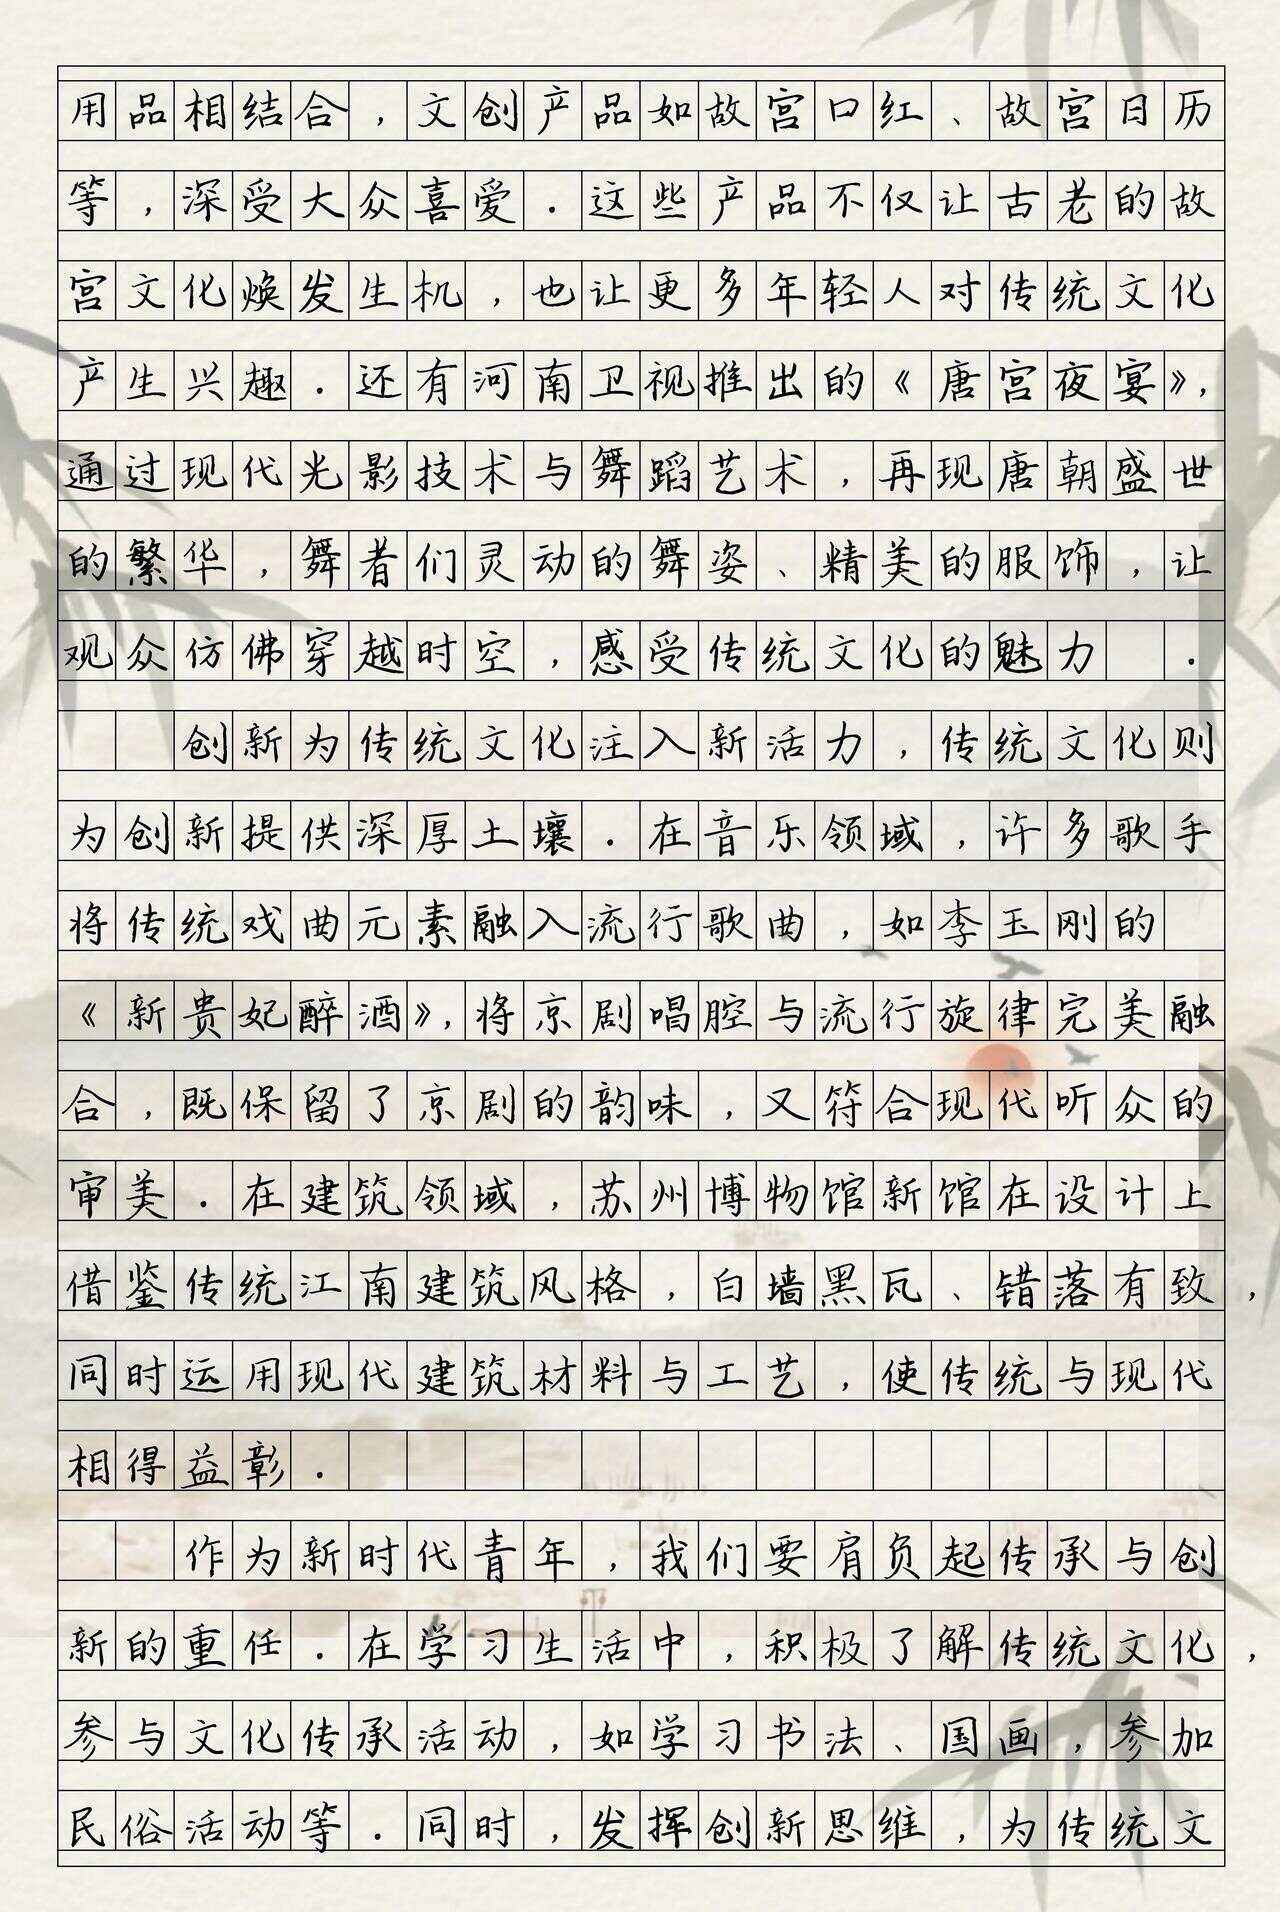 用品相结合，文创产品如故宫口红、故宫日历
等，深受大众喜爱．这些产品不仅让古老的故
宫文化焕发生机，也让更多年轻人对传统文化
产生兴趣．还有河南卫视推出的《唐宫夜宴》，
通过现代光影技术与舞蹈艺术，再现唐朝盛世
的繁华，舞者们灵动的舞姿、精美的服饰，让
观众仿佛穿越时空，感受传统文化的魅力．
创新为传统文化注入新活力，传统文化则
为创新提供深厚土壤．在音乐领域，许多歌手
将传统戏曲元素融入流行歌曲，如李玉刚的
《新贵妃醉酒》，将京剧唱腔与流行旋律完美融
合，既保留了京剧的韵味，又符合现代听众的
审美．在建筑领域，苏州博物馆新馆在设计上
借鉴传统江南建筑风格，白墙黑瓦、错落有致，
同时运用现代建筑材料与工艺，使传统与现代
相得益彰．
作为新时代青年，我们要肩负起传承与创
新的重任．在学习生活中，积极了解传统文化，
参与文化传承活动，如学习书法、国画，参加
民俗活动等．同时，发挥创新思维，为传统文